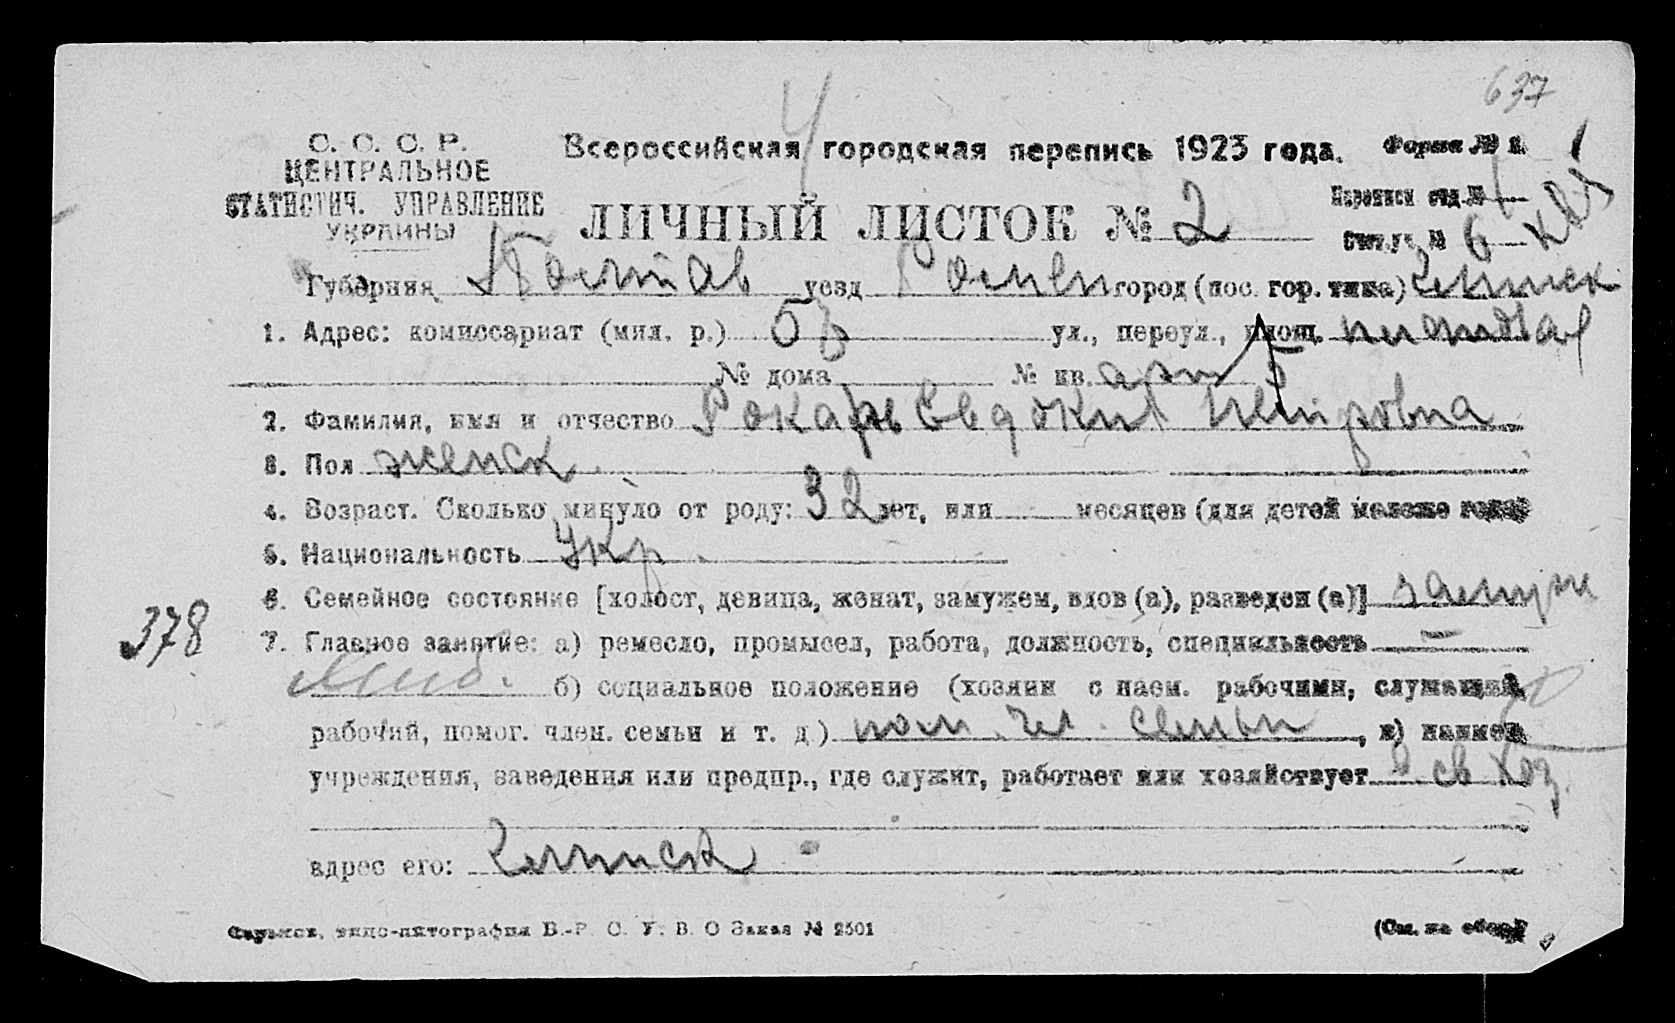 637
4
С. С. С. Р.
ЦЕНТРАЛЬНОЕ
СТАТИСТИЧ. УПРАВЛЕНИЕ
УКРАИНЫ
Всероссийская городская перепись 1923 года.
Форма № 2.
1
ЛИЧНЫЙ ЛИСТОК № 2
Переписн отд. №
Счет. уч. № 6
Губерния Полтав уезд Ромен город (пос. гор. типа)
1. Адрес: комиссариат (мил. р.) ул., переул., площ.
№ дома № кв.
2. Фамилия, имя и отчество Евдокия Петровна
3. Пол женск
4. Возраст. Сколько минуло от роду: 32 лет, или месяцев (для детей моложе года)
5. Национальность Укр.
6. Семейное состояние [холост, девица, женат, замужем, вдов (а), разведен (а)] замуж
378
7. Главное занятие: а) ремесло, промысел, работа, должность, специальность —
б) социальное положение (хозяин с наем. рабочими, служащий,
рабочий, помог. член. семьи и т. д.) пом. чл. семьи, в) наимен
учреждения, заведения или предпр., где служит, работает или хозяйствует в св хоз.
адрес его:
Харьков, типо-литография В.-Р. С. У. В. О Заказ № 2501
(См. на обор.)